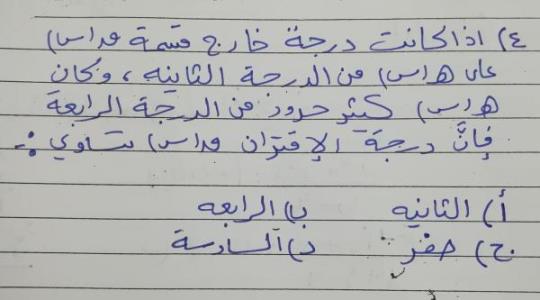 ٤) اذا كانت درجة خارج قسمة ق(س)
على هـ(س) من الدرجة الثانيه ، وكان
هـ(س) كثير حدود من الدرجة الرابعة
فإنَّ درجة الإقتران ق(س) تساوي :-
أ) الثانيه ب) الرابعه
ج) صفر د) السادسة